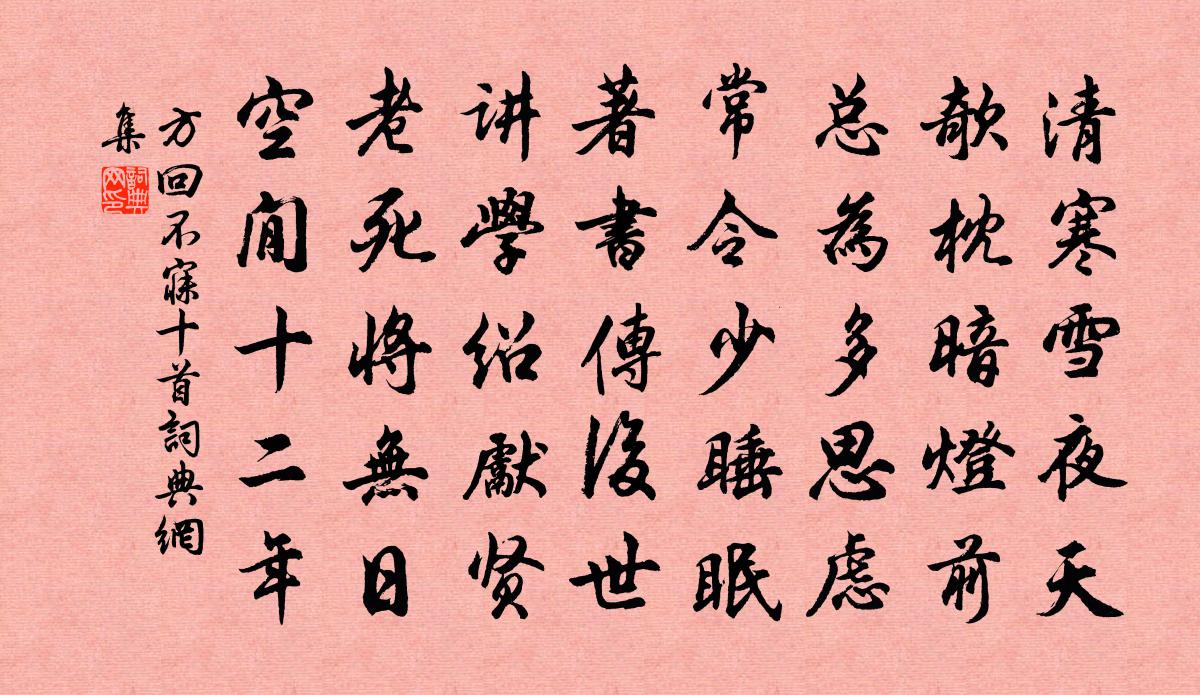 清寒雪夜天
欹枕暗燈前
总為多思慮
常令少睡眠
著書傳後世
讲學紹獻贤
老死将無日
空閒十二年
方回不寐十首詞典網
集
詞典
网印